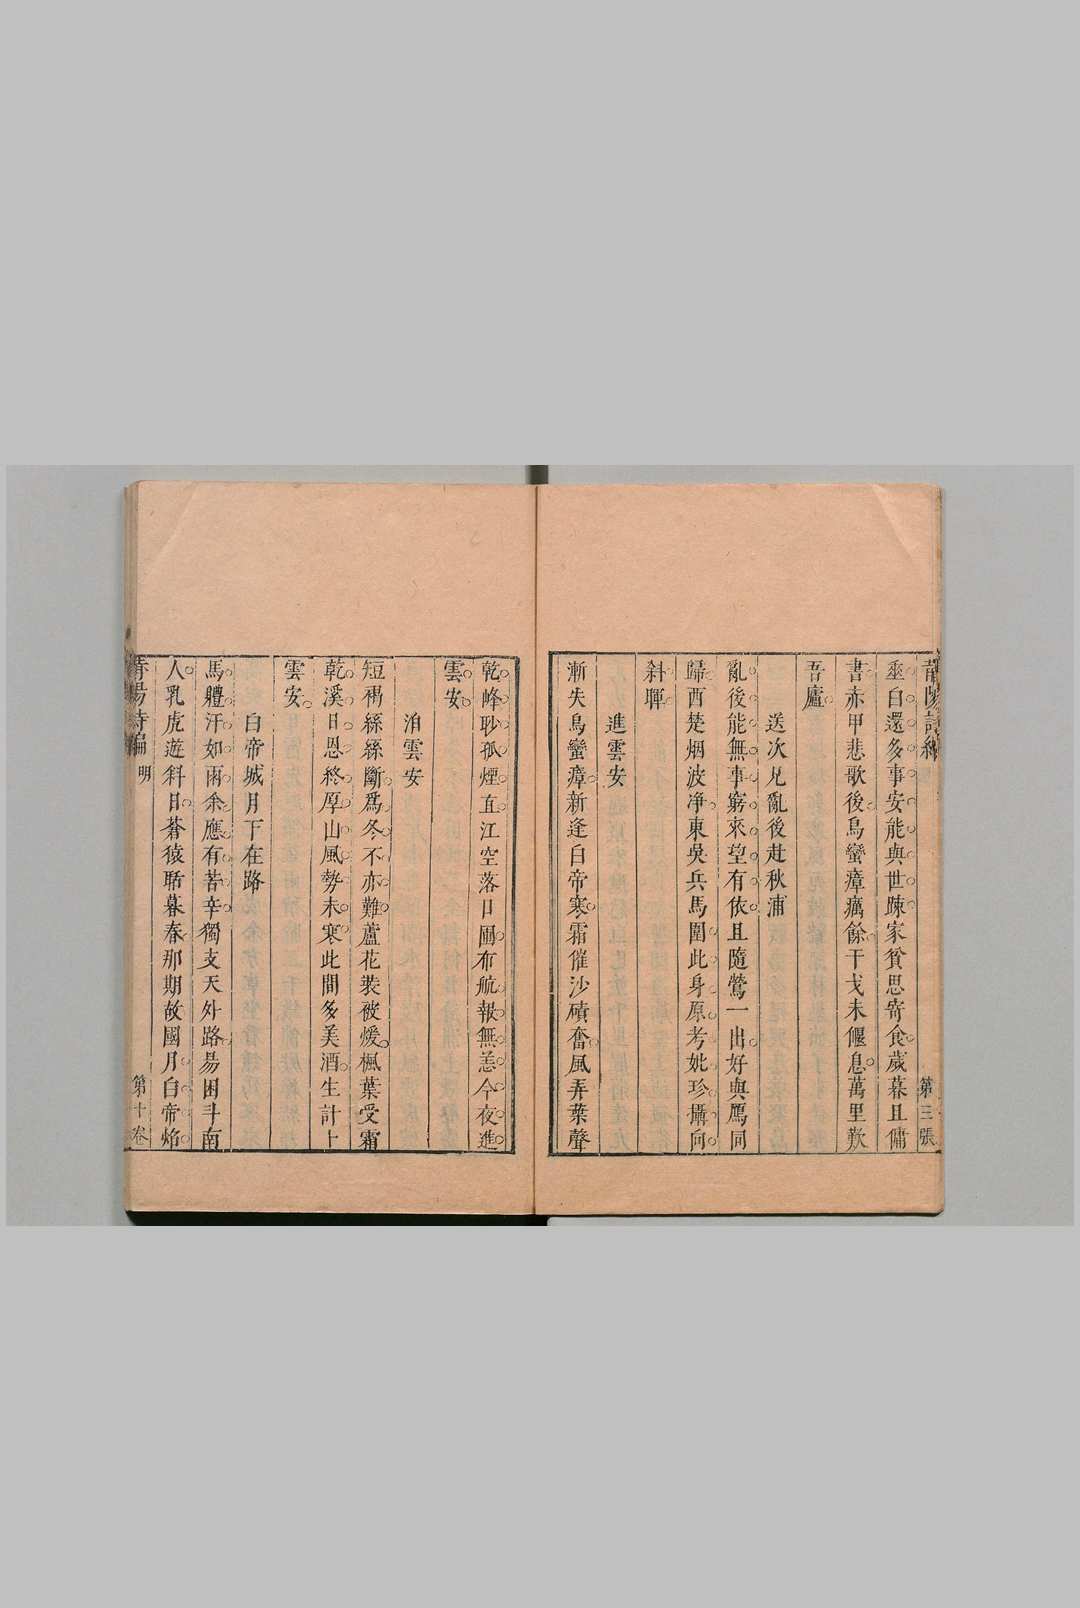 莆陽詩編
第三張
垂白還多事安能與世踈家貧思寄食歲暮且傭
書赤甲悲歌後烏蠻瘴癘餘干戈未偃息萬里歎
吾廬
送次兄亂後赴秋浦
亂後能無事窮來望有依且隨鶯一出好與鴈同
歸酉楚烟波净東吳兵馬圍此身原考妣珍攝向
斜暉
進雲安
漸失烏蠻瘴新逢白帝寒霜催沙磧奮風弄葉聲
乾峰耿孤煙直江空落日圓布航報無恙今夜進
雲安
泊雲安
短褐絲絲斷爲冬不亦難蘆花裝被煖楓葉受霜
乾溪日恩終厚山風勢未寒此間多美酒生計上
雲安
白帝城月下在路
馬軆汗如雨余應有苦辛獨支天外路易困斗南
人乳虎遊斜日蒼猿聒暮春那期故國月白帝焰
莆陽詩編 明
第十卷